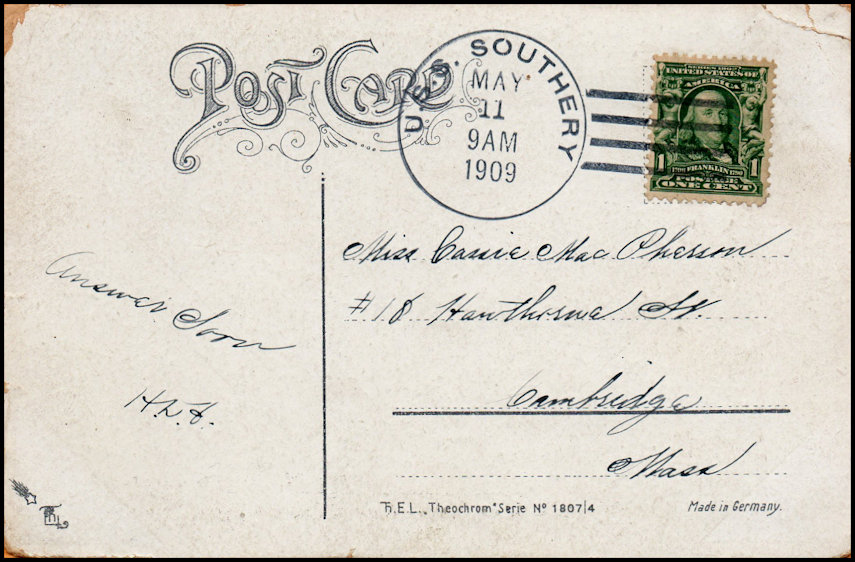 POST CARD
U.S.S. SOUTHERY
MAY
11
9AM
1909
SERIES 1902
UNITED STATES OF
AMERICA
1 1
1706 FRANKLIN 1790
POSTAGE
ONE CENT
Miss Cassie Mac Pherson
#18 Hawthorne St.
Cambridge
Mass
Answer Soon
H.L.
Th.E.L. „Theochrom" Serie Nº 1807/4
Made in Germany.